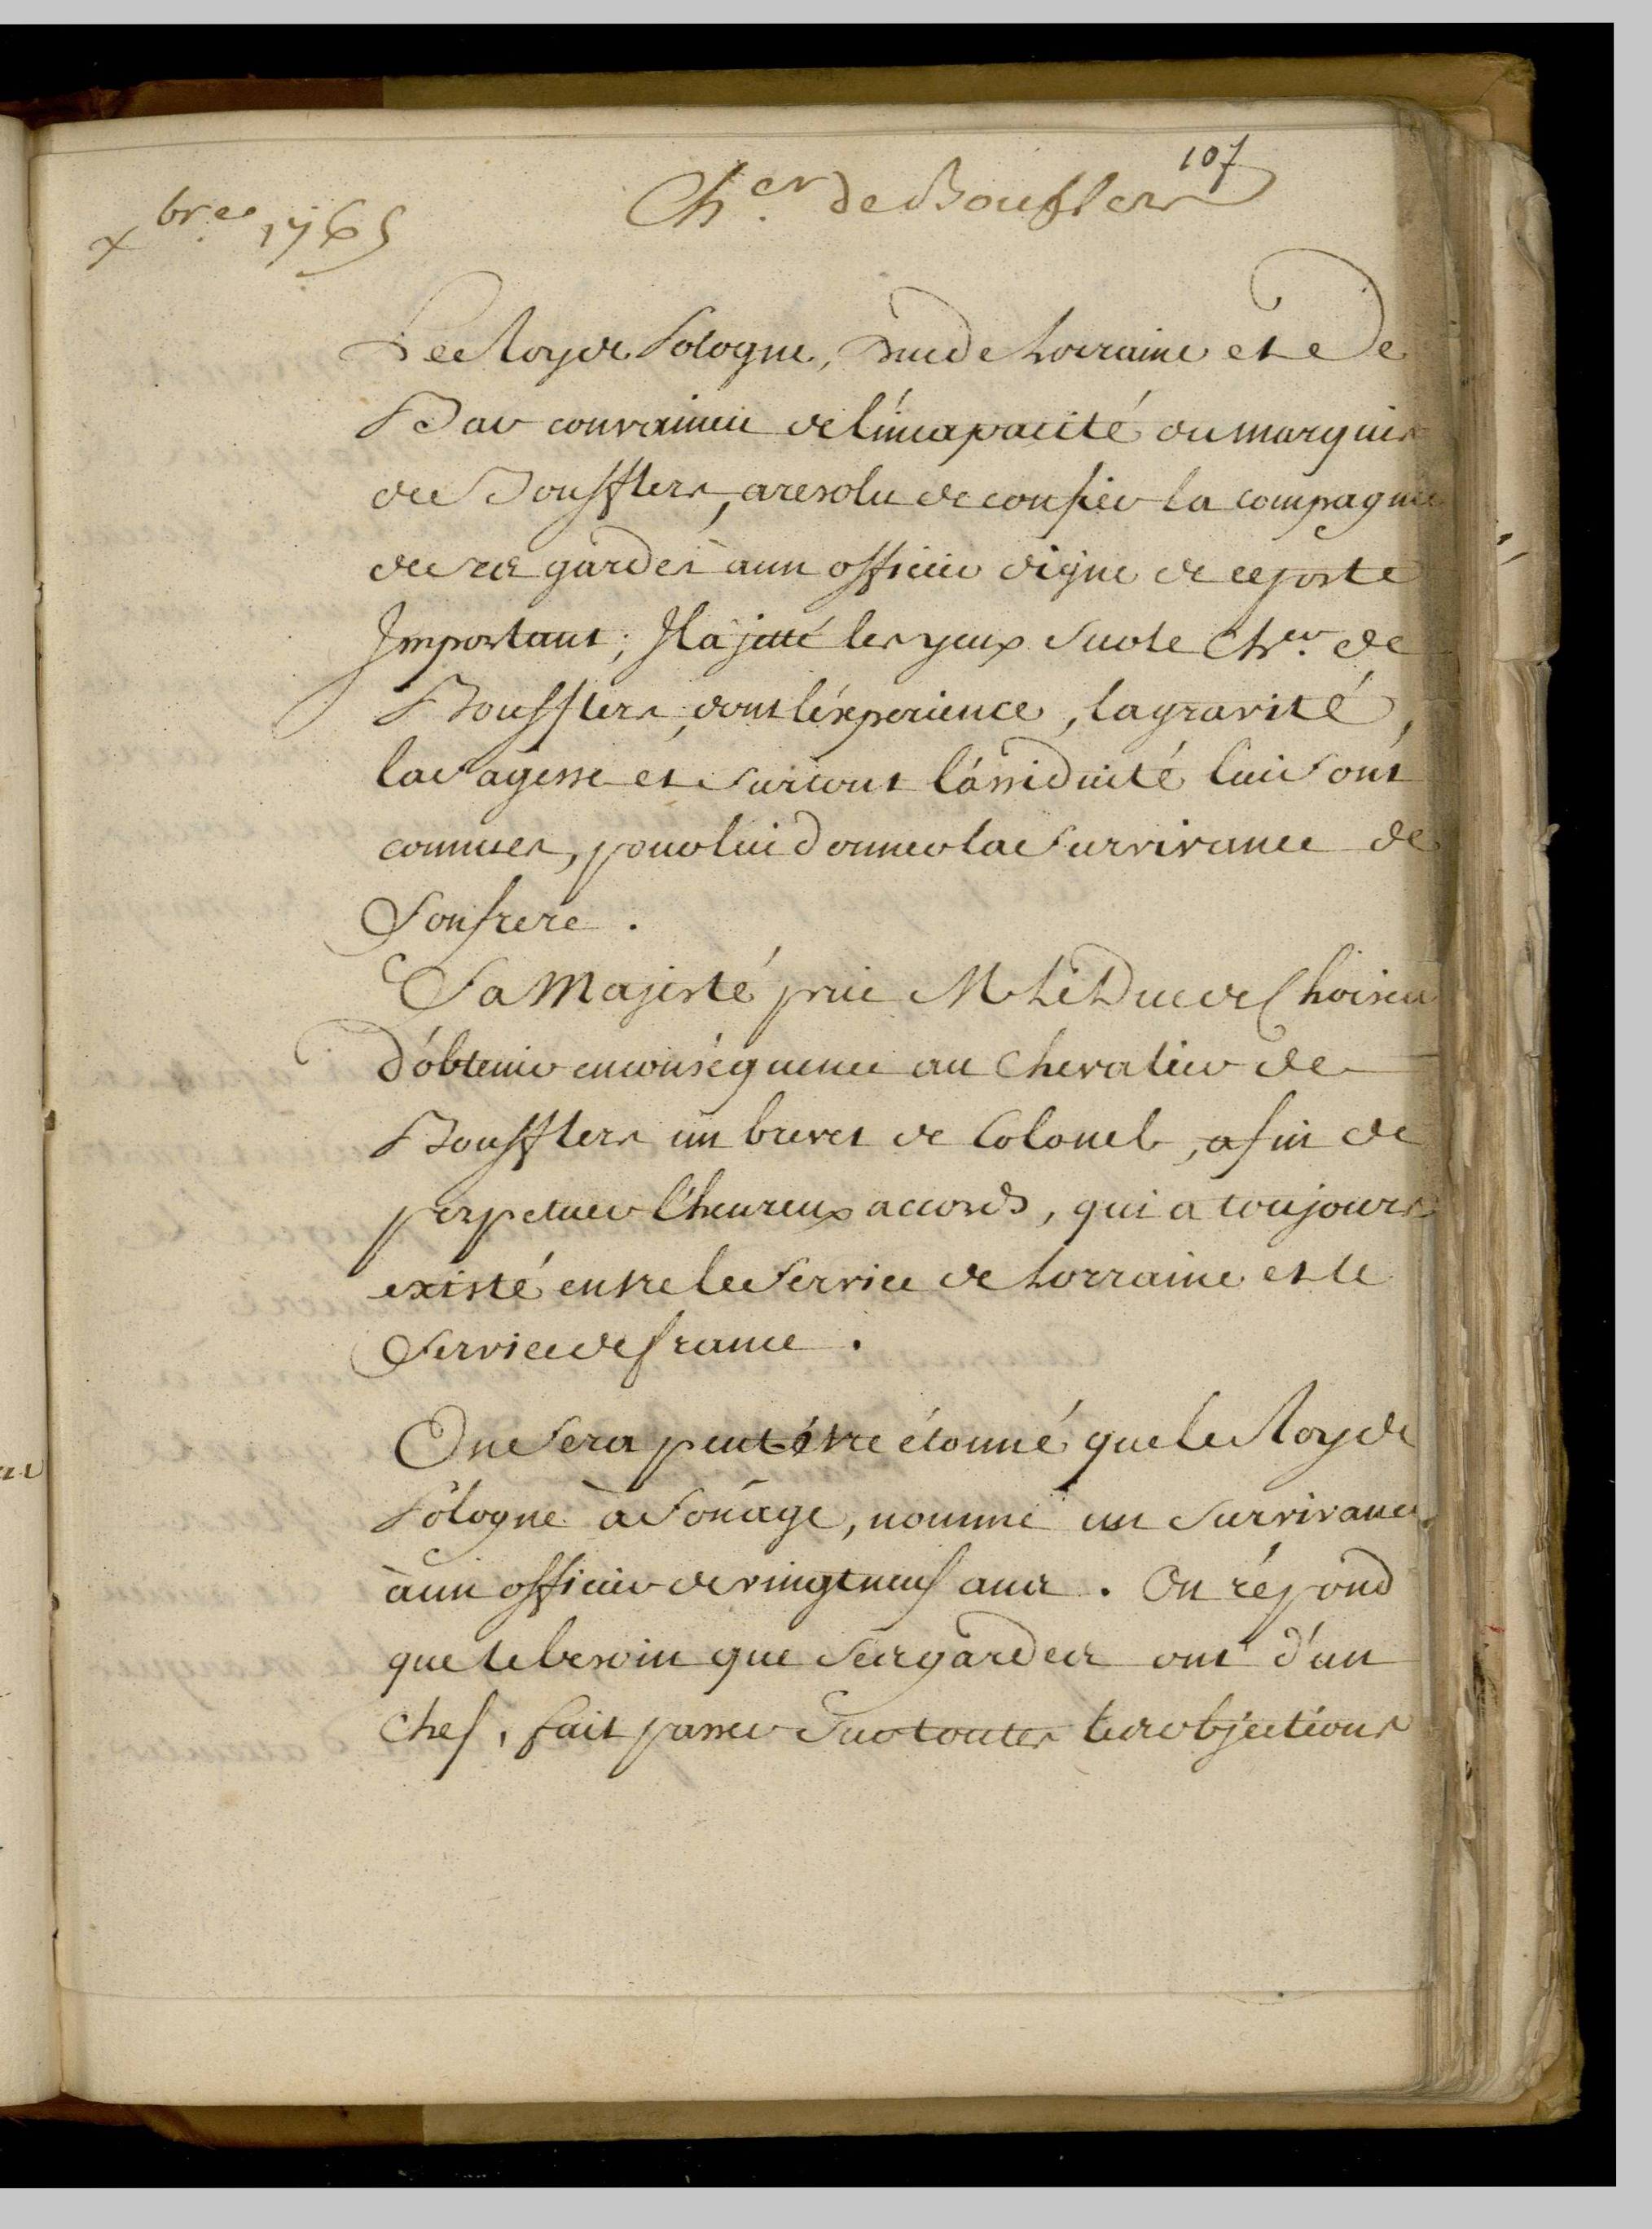 107
Ch.er de Bouflers
xbre. 1765
Le Roy de Pologne, Duc de Lorraine et de
Bar convaincu de l'incapacité du marquis
de Boufflers, a resolu de confier la compagnie
de ses gardes à un officier digne de ce poste
Important; Il a jetté les yeux sur le Ch.er de
Boufflers, dont l'éxperience, la gravité,
la sagesse et surtout l'assiduité lui sont
connues, pour lui donner la survivance de
son frere.
Sa Majesté prie M. Le Duc de Choiseu
d'obtenir en conséquence au chevalier de
Boufflers un brevet de Colonel, afin de
perpetuer l'heureux accord, qui a toujours
existé entre le service de Lorraine et le
service de france.
On sera peut être étonné que le Roy de
Pologne à son age, nomme un survivancier
à un officier de vingt neuf ans. On répond
que le besoin que ses gardes ont d'un
chef, fait passer sur toutes les objections